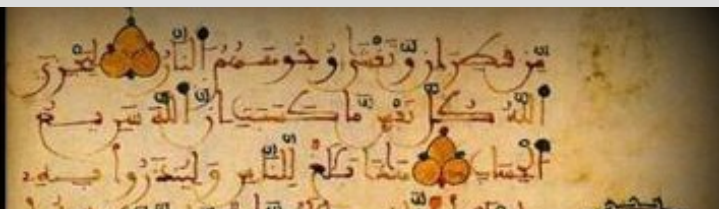 مِّن قَطِرَانٍ وَتَغْشَىٰ وُجُوهَهُمُ اَ۬لنَّارُ لِيَجْزِيَ
اَ۬للَّهُ كُلَّ نَفْسٍ مَّا كَسَبَتِ اِنَّ اَ۬للَّهَ سَرِيعُ
اُ۬لْحِسَابِ هَٰذَا بَلَٰغٌ لِّلنَّاسِ وَلِيُنذَرُواْ بِهِۦ